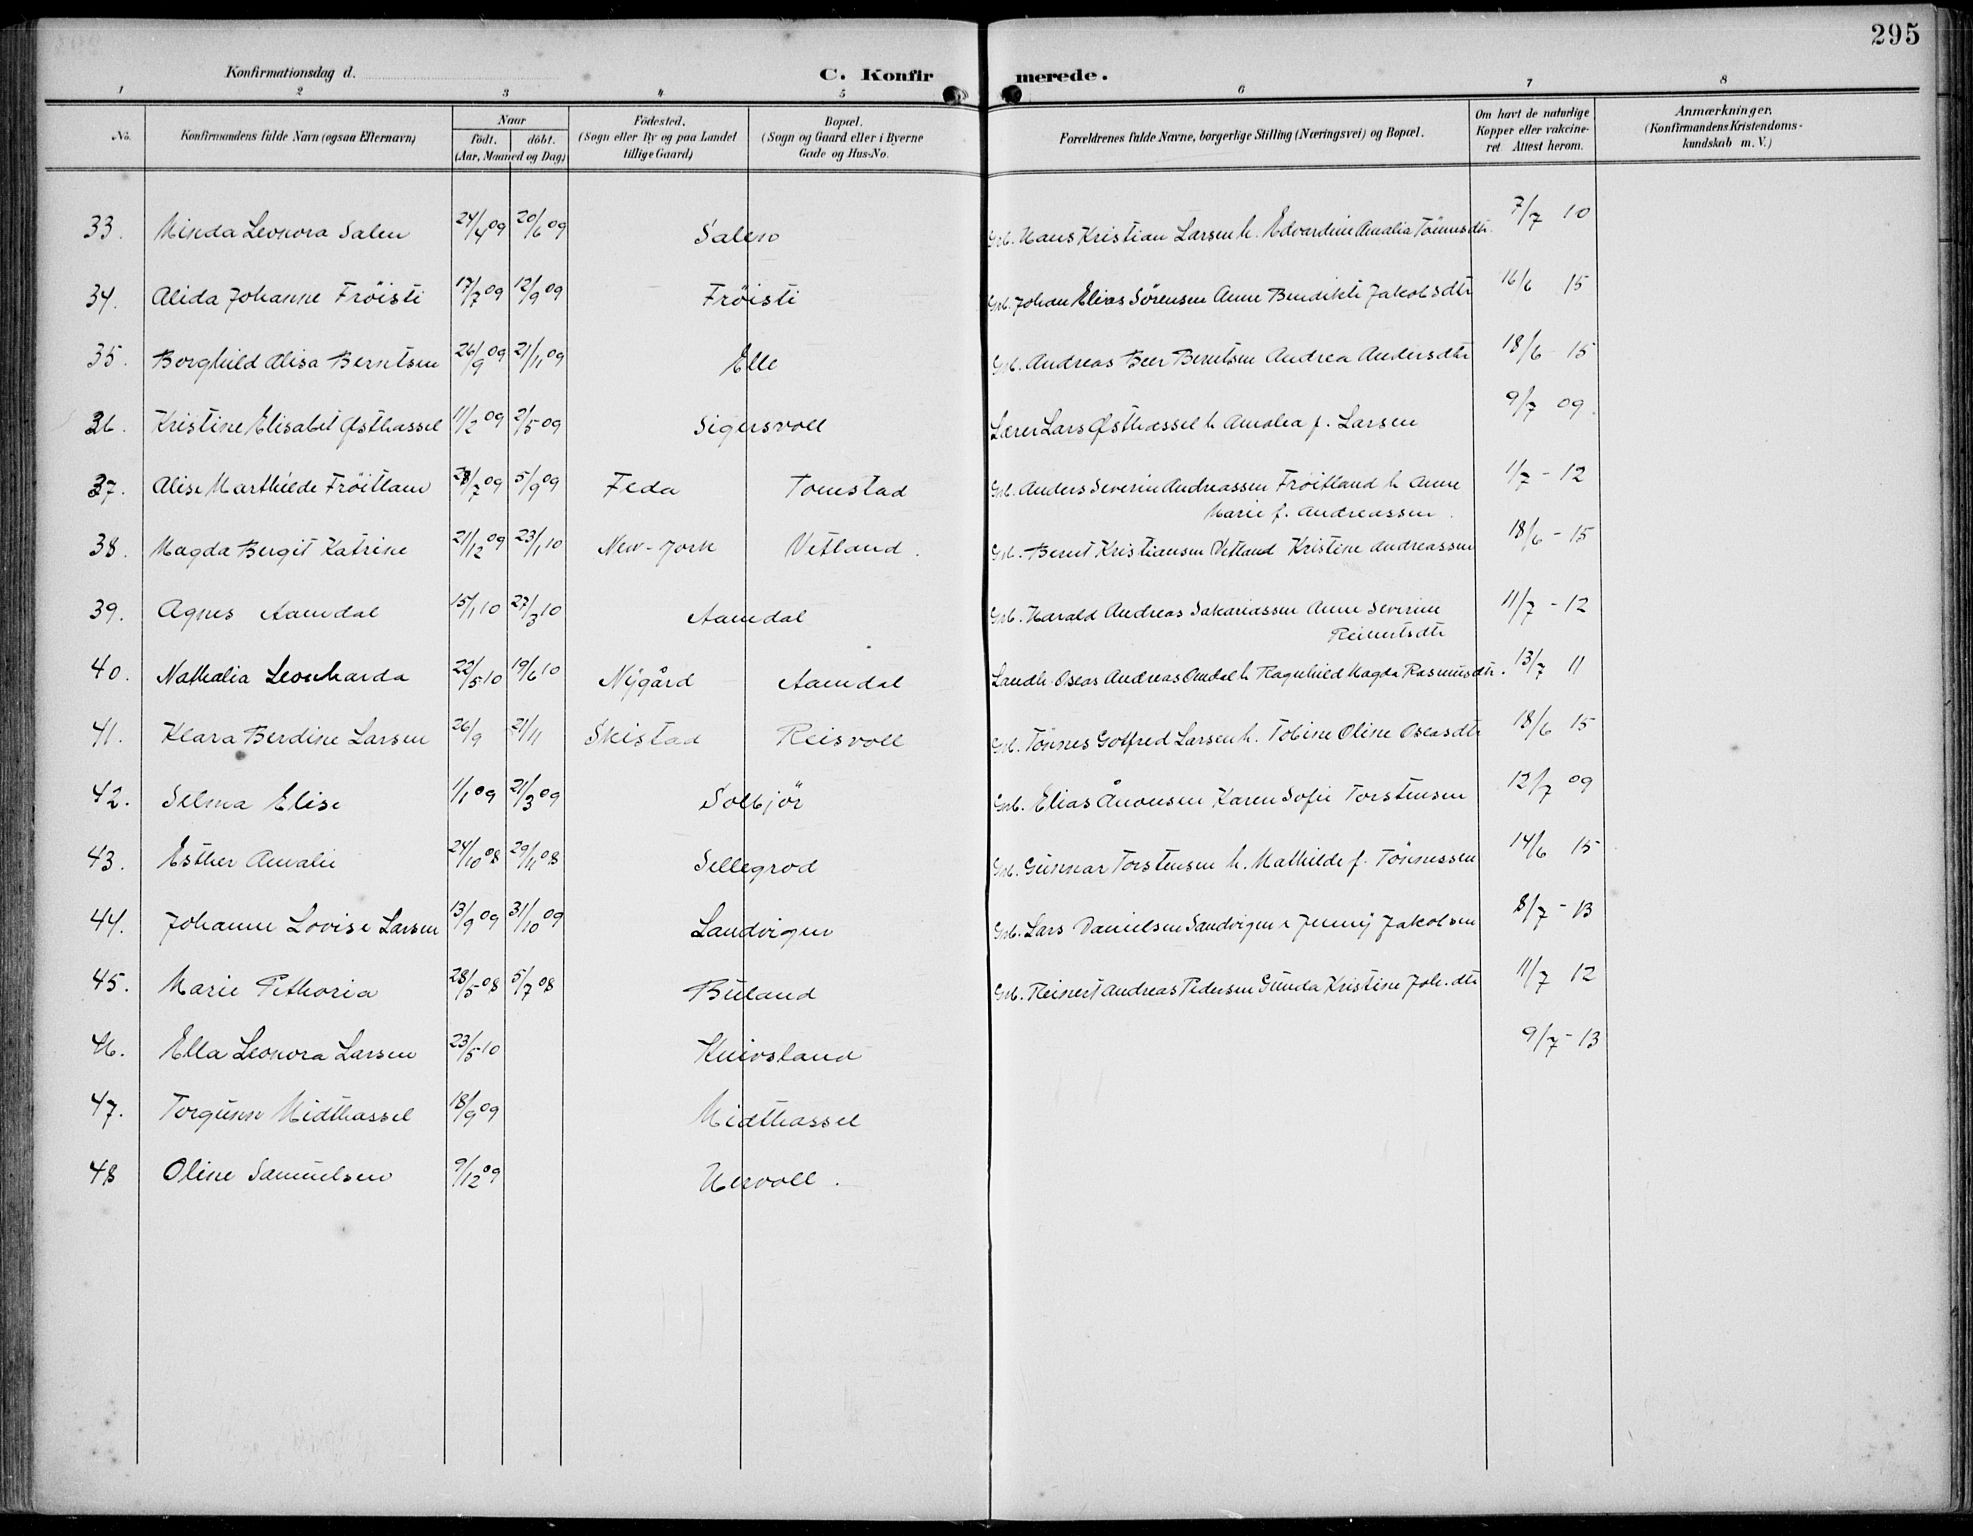 295
Konfirmationsdag d. C. Konfirmerede.
1 2 3 4 5 6 7 8
No. Konfirmandens fulde Navn (ogsaa Efternavn) Naar födt. döbt. (Aar, Maaned og Dag) Födested. (Sogn eller By og paa Landet tillige Gaard) Bopæl. (Sogn og Gaard eller i Byerne Gade og Hus-No. Forældrenes fulde Navne, borgerlige Stilling (Næringsvei) og Bopæl. Om havt de naturlige Kopper eller vakcineret Attest herom. Anmærkninger. (Konfirmandens Kristendomskundskab m. V.)
33. Minda Leonora Salen 24/4 09 20/6 09 Salen Grb. Hans Kristian Larsen h. Edvardine Amalia Tönnesdtr. 7/7 10
34. Alida Johanne Fröisti 17/7 09 12/9 09 Fröisti Grb. Johan Elias Sørensen Anne Bendikte Jakobsdtr 16/6 15
35. Borghild Alisa Berntsen 26/9 09 21/11 09 Elle Grb. Andreas Beer Berntsen Andrea Andersdtr 18/6 - 15
36. Kristine Elisabet Østhassel 11/2 09 2/5 09 Sigersvoll Lærer Lars Østhassel h Amalia f. Larsen 9/7 09.
37. Alise Marthilde Fröitland 28/7 09 5/9 09 Feda Tomstad Grb. Anders Severin Andreassen Fröitland h Anne
Marie f. Andreassen.
1/7 - 12
38. Magda Bergit Katrine 21/12 09 23/1 10 New-York Vetland. Grb. Bernt Kristiansen Vetland Kristine Andreassen 18/6 - 15
39. Agnes Aamdal 15/1 10 27/3 10 Aamdal Grb. Harald Andreas Sakariassen Anne Severine
Reinertsdtr
11/7 - 12
40. Nathalia Leonharda 22/5 10 19/6 10 Nÿgård Aamdal Landh. Oseas Andreas Omdal h Ragnhild Magda Rasmusdtr. 13/7 11
41. Klara Berdine Larsen 26/9 21/11 Skistad Reisvoll Grb. Tönnes Gotfred Larsen h. Tobine Oline Oseasdtr 18/6 15
42. Selma Elise 1/1 09 21/3 09 Solbjör Grb. Elias Ånonsen Karen Sofie Torstensen 12/7 09
43. Esther Amalie 24/10 08 29/11 08 Sellegrod Grb. Gunnar Torstensen h. Mathilde f. Tönnessen 14/6 15
44. Johanne Lovise Larsen 13/9 09 31/10 09 Sandvigen Grb. Lars Danielsen Sandvigen Jennÿ Jakobsen 8/7 - 13
45. Marie Pethoria 28/5 08 5/7 08 Büland Grb. Reinert Andreas Pedersen Gunda Kristine Joh.dtr 11/7 12
46. Ella Leonora Larsen 23/5 10 Knivsland 9/7 - 13
47. Torgunn Midthassel 18/9 09 Midthassel
48 Oline Samuelsen 9/12 09 Hervoll.